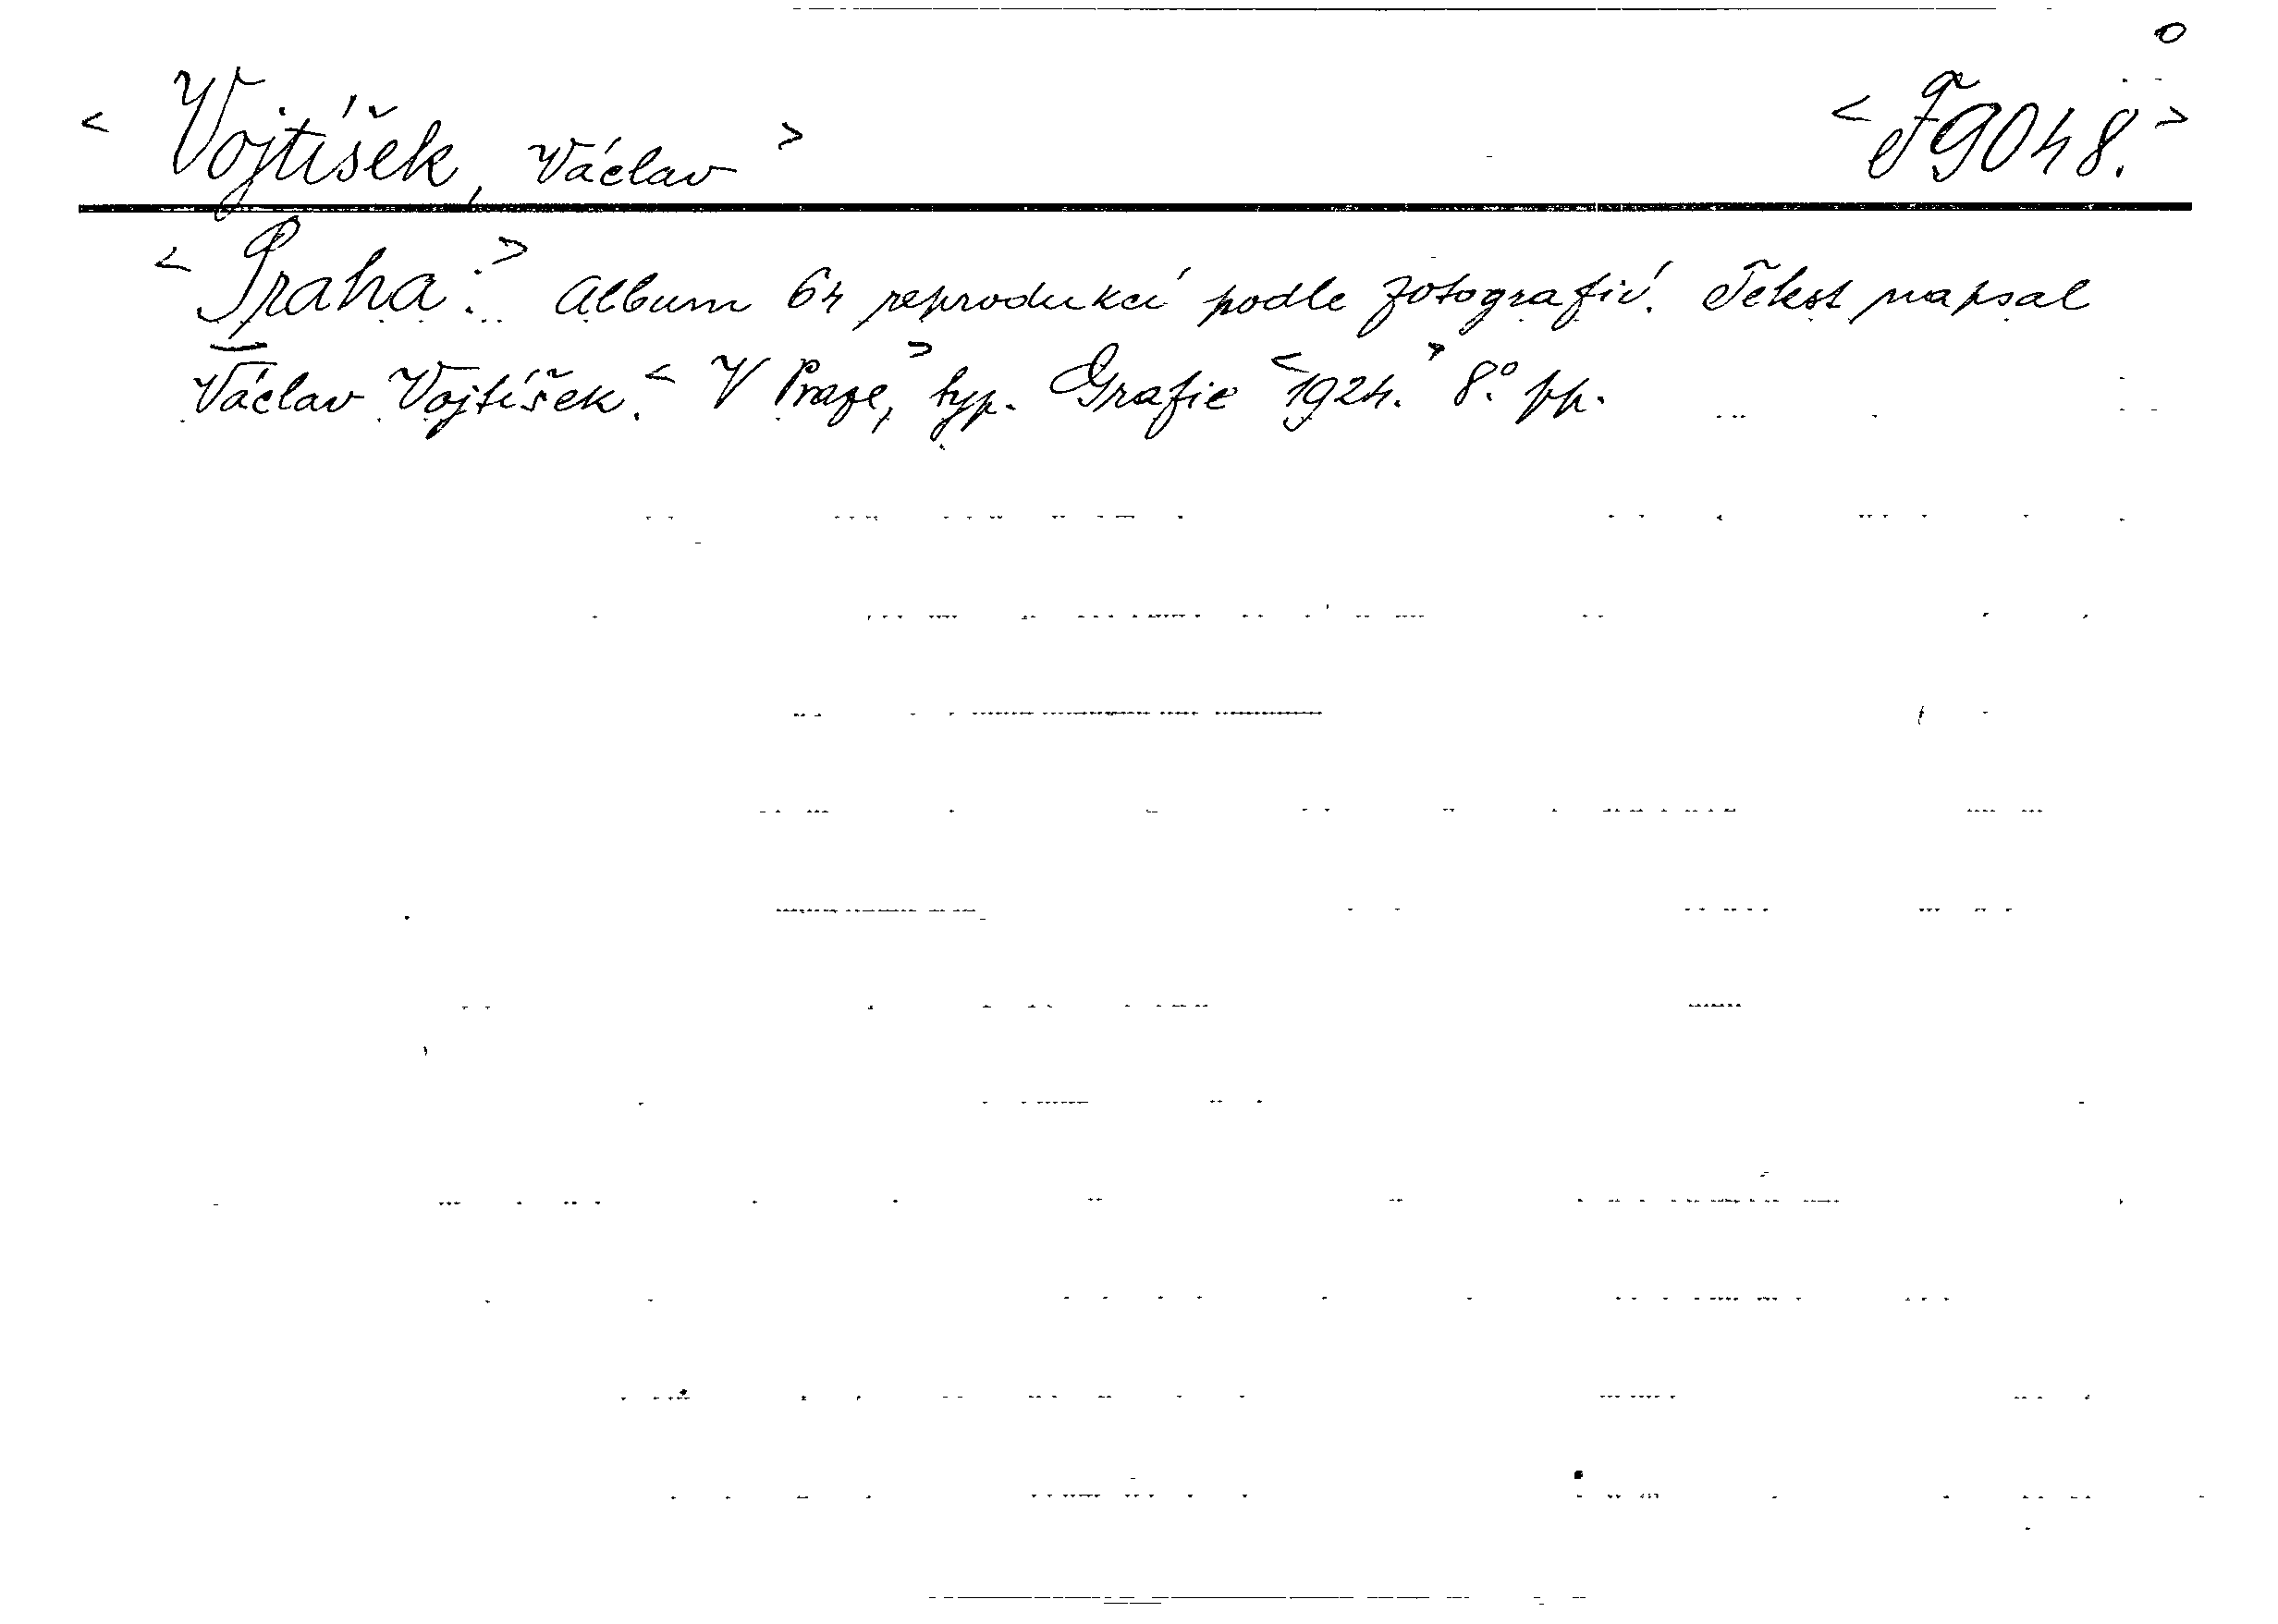 < Vojtíšek, Václav > < F9048. >
< Praha. > Album 64 reprodukcí podle fotografií. Tekst napsal
Václav Vojtíšek. < V Praze, > typ. Grafie < 1924. > 8.° pp.